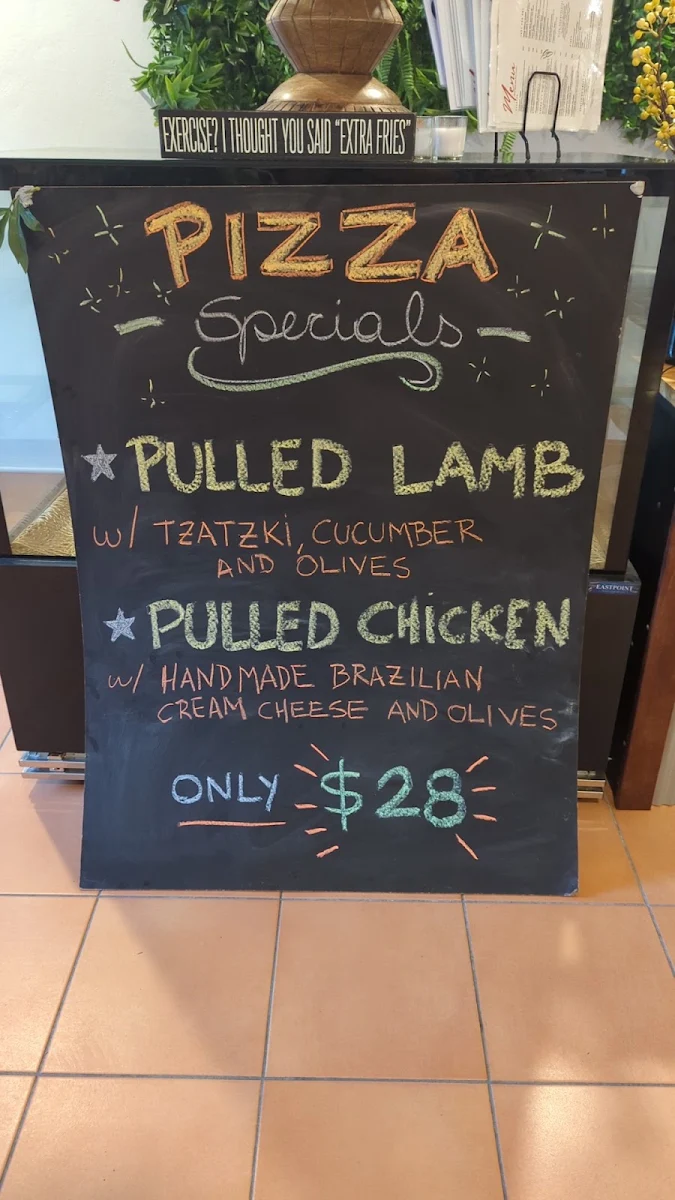 Menu
EXERCISE? I THOUGHT YOU SAID "EXTRA FRIES"
PIZZA
Specials
PULLED LAMB
w/ TZATZKI, CUCUMBER
AND OLIVES
EASTPOINT
PULLED CHICKEN
w/ HANDMADE BRAZILIAN
CREAM CHEESE AND OLIVES
ONLY $28